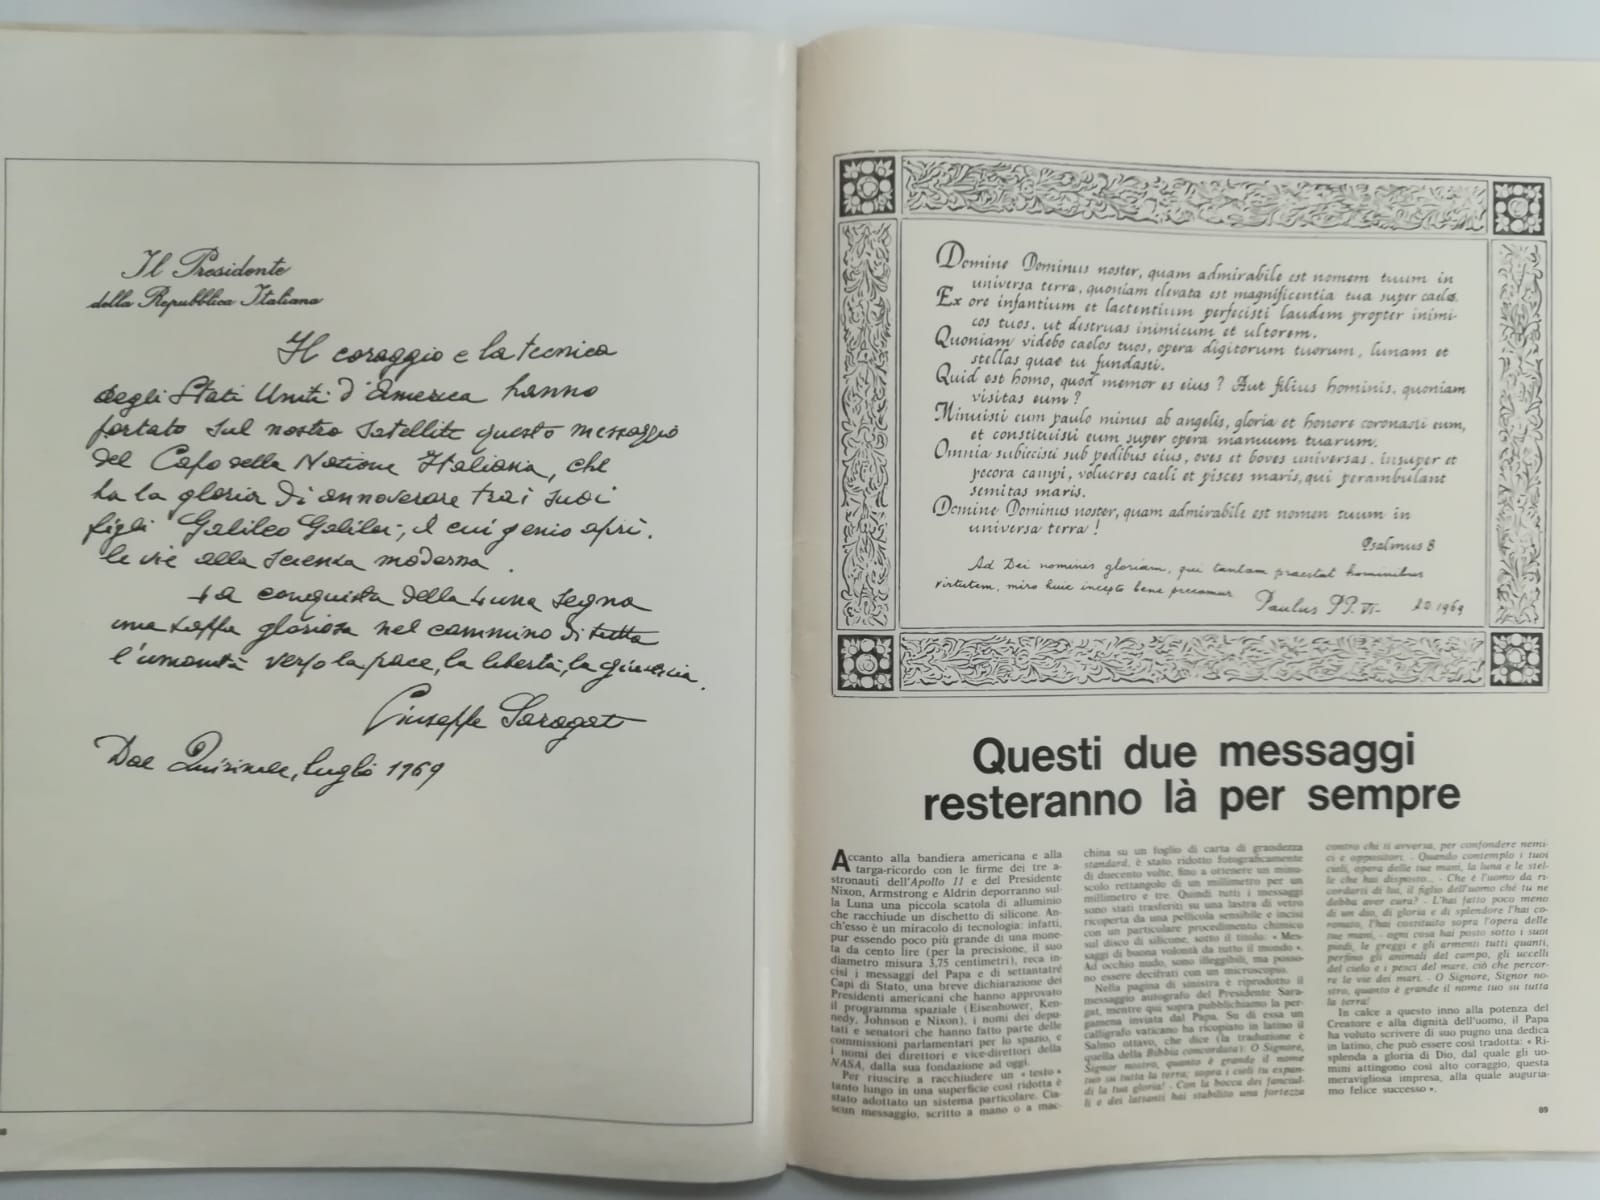 Il Presidente
della Repubblica Italiana
Il coraggio e la tecnica
degli Stati Uniti d'America hanno
portato sul nostro satellite questo messaggio
del Capo della Nazione Italiana, che
ha la gloria di annoverare tra i suoi
figli Galileo Galilei, il cui genio aprì
le vie alla scienza moderna.
La conquista della Luna segna
una tappa gloriosa nel cammino di tutta
l'umanità verso la pace, la libertà, la giustizia.
Giuseppe Saragat
Dal Quirinale, luglio 1969
Domine Dominus noster, quam admirabile est nomem tuum in
universa terra, quoniam elevata est magnificentia tua super caelos.
Ex ore infantium et lactentium perfecisti laudem propter inimi-
cos tuos, ut destruas inimicum et ultorem.
Quoniam videbo caelos tuos, opera digitorum tuorum, lunam et
stellas quae tu fundasti.
Quid est homo, quod memor es eius? Aut filius hominis, quoniam
visitas eum?
Minuisti eum paulo minus ab angelis, gloria et honore coronasti eum,
et constituisti eum super opera manuum tuarum.
Omnia subiecisti sub pedibus eius, oves et boves universas, insuper et
pecora campi, volucres caeli et pisces maris, qui perambulant
semitas maris.
Domine Dominus noster, quam admirabile est nomen tuum in
universa terra!
Psalmus 8
Ad Dei nominis gloriam, qui tantam praestat hominibus
virtutem, miro huic incepto bene precamur
Paulus PP. VI. A.D. 1969
Questi due messaggi
resteranno là per sempre
Accanto alla bandiera americana e alla
targa-ricordo con le firme dei tre a-
stronauti dell'Apollo 11 e del Presidente
Nixon, Armstrong e Aldrin deporranno sul-
la Luna una piccola scatola di alluminio
che racchiude un dischetto di silicone. An-
ch'esso è un miracolo di tecnologia: infatti,
pur essendo poco più grande di una mone-
ta da cento lire (per la precisione, il suo
diametro misura 3,75 centimetri), reca in-
cisi i messaggi del Papa e di settantatré
Capi di Stato, una breve dichiarazione dei
Presidenti americani che hanno approvato
il programma spaziale (Eisenhower, Ken-
nedy, Johnson e Nixon), i nomi dei depu-
tati e senatori che hanno fatto parte delle
commissioni parlamentari per lo spazio, e
i nomi dei direttori e vice-direttori della
NASA, dalla sua fondazione ad oggi.
Per riuscire a racchiudere un « testo »
tanto lungo in una superficie così ridotta è
stato adottato un sistema particolare. Cia-
scun messaggio, scritto a mano o a mac-
china su un foglio di carta di grandezza
standard, è stato ridotto fotograficamente
di duecento volte, fino a ottenere un minu-
scolo rettangolo di un millimetro per un
millimetro e tre. Quindi tutti i messaggi
sono stati trasferiti su una lastra di vetro
ricoperta da una pellicola sensibile e incisi
con un particolare procedimento chimico
sul disco di silicone, sotto il titolo: « Mes-
saggi di buona volontà da tutto il mondo ».
Ad occhio nudo, sono illeggibili, ma posso-
no essere decifrati con un microscopio.
Nella pagina di sinistra è riprodotto il
messaggio autografo del Presidente Sara-
gat, mentre qui sopra pubblichiamo la per-
gamena inviata dal Papa. Su di essa un
calligrafo vaticano ha ricopiato in latino il
Salmo ottavo, che dice (la traduzione è
quella della Bibbia concordata): O Signore,
Signor nostro, quanto è grande il nome
tuo su tutta la terra; sopra i cieli tu espan-
di la tua gloria! - Con la bocca dei fanciul-
li e dei lattanti hai stabilito una fortezza
contro chi ti avversa, per confondere nemi-
ci e oppositori. - Quando contemplo i tuoi
cieli, opera delle tue mani, la luna e le stel-
le che hai disposto... - Che è l'uomo da ri-
cordarti di lui, il figlio dell'uomo ché tu ne
debba aver cura? - L'hai fatto poco meno
di un dio, di gloria e di splendore l'hai co-
ronato, l'hai costituito sopra l'opera delle
tue mani, - ogni cosa hai posto sotto i suoi
piedi, le greggi e gli armenti tutti quanti,
perfino gli animali del campo, gli uccelli
del cielo e i pesci del mare, ciò che percor-
re le vie dei mari. - O Signore, Signor no-
stro, quanto è grande il nome tuo su tutta
la terra!
In calce a questo inno alla potenza del
Creatore e alla dignità dell'uomo, il Papa
ha voluto scrivere di suo pugno una dedica
in latino, che può essere così tradotta: « Ri-
splenda a gloria di Dio, dal quale gli uo-
mini attingono così alto coraggio, questa
meravigliosa impresa, alla quale auguria-
mo felice successo ».
89